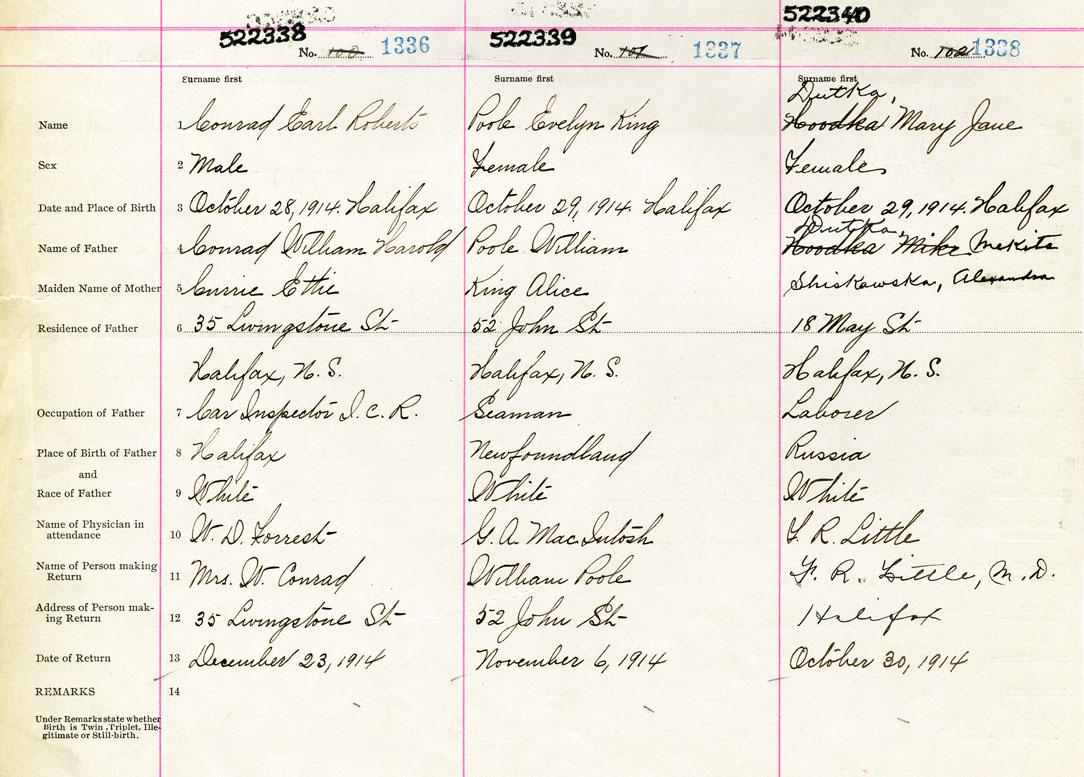 522338 522339 522340
No. 100 1336 No. 101 1337 No. 102 1338
Surname first Surname first Surname first
Dutka,
Name 1 Conrad Earl Roberts Poole Evelyn King Hoodka Mary Jane
Sex 2 Male Female Female
Date and Place of Birth 3 October 28, 1914. Halifax October 29, 1914. Halifax October 29, 1914. Halifax
Dutka,
Name of Father 4 Conrad William Harold Poole William Hoodka Mike Mekita
Maiden Name of Mother 5 Currie Ettie King Alice Shiskowska, Alexandra
Residence of Father 6 35 Livingstone St 52 John St 18 May St
Halifax, N. S. Halifax, N. S. Halifax, N. S.
Occupation of Father 7 Car Inspector I. C. R. Seaman Laborer
Place of Birth of Father 8 Halifax Newfoundland Russia
and
Race of Father 9 White White White
Name of Physician in
attendance 10 W. D. Forrest G. A. MacIntosh F. R. Little
Name of Person making
Return 11 Mrs. W. Conrad William Poole F. R. Little, M. D.
Address of Person mak-
ing Return 12 35 Livingstone St 52 John St Halifax
Date of Return 13 December 23, 1914 November 6, 1914 October 30, 1914
REMARKS 14
Under Remarks state whether
Birth is Twin, Triplet, Ille-
gitimate or Still-birth.